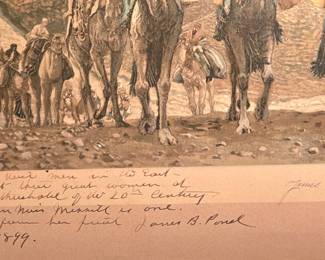 men in the East
their great women at
threshold of the 20th Century
Miss Merritt is one.
from her friend James B. Pond
1899.